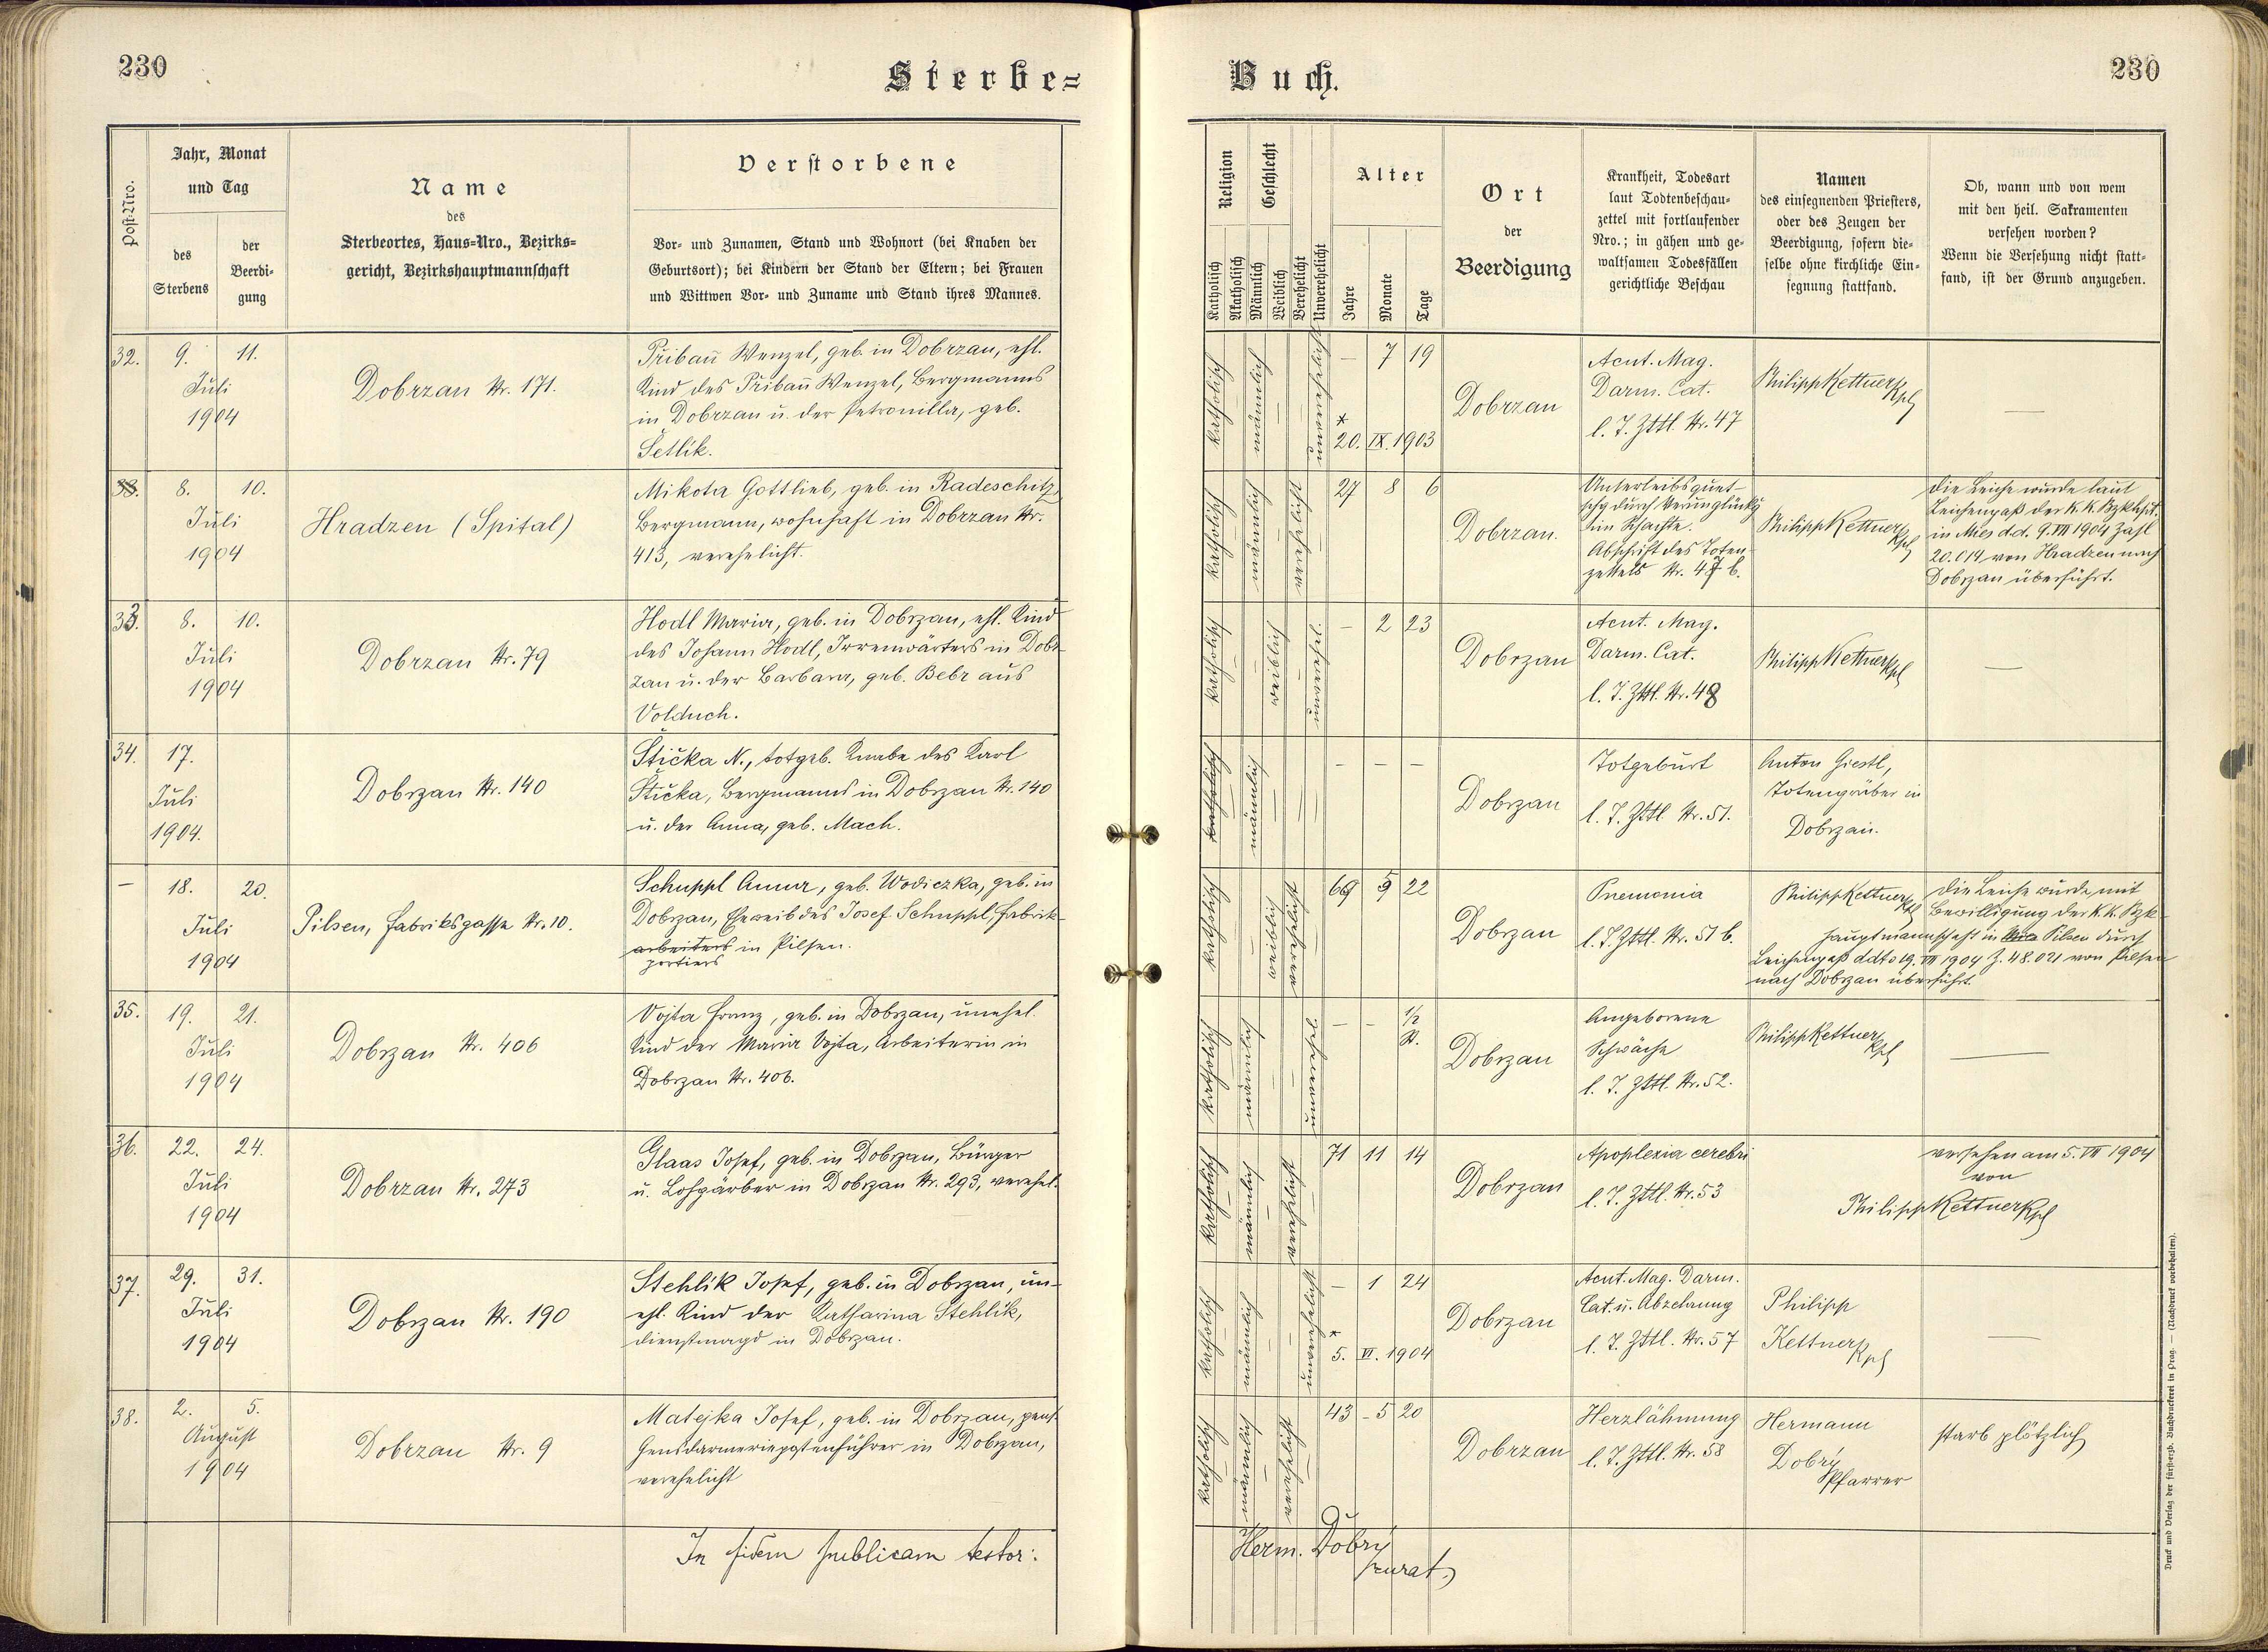 230
Sterbe=
Buch.
230
Post-Nro.
Jahr, Monat
und Tag
des
Sterbens
der
Beerdi-
gung
Name
des
Sterbeortes, Haus=Nro., Bezirks=
gericht, Bezirkshauptmannschaft
Verstorbene
Vor= und Zunamen, Stand und Wohnort (bei Knaben der
Geburtsort); bei Kindern der Stand der Eltern; bei Frauen
und Wittwen Vor= und Zuname und Stand ihres Mannes.
Religion
Katholisch
Akatholisch
Geschlecht
Männlich
Weiblich
Verehelicht
Unverehelicht
Alter
Jahre
Monate
Tage
Ort
der
Beerdigung
Krankheit, Todesart
laut Todtenbeschau=
zettel mit fortlaufender
Nro.; in gähen und ge=
waltsamen Todesfällen
gerichtliche Beschau
Namen
des einsegnenden Priesters,
oder des Zeugen der
Beerdigung, sofern die=
selbe ohne kirchliche Ein=
segnung stattfand.
Ob, wann und von wem
mit den heil. Sakramenten
versehen worden?
Wenn die Versehung nicht statt=
fand, ist der Grund anzugeben.
32.
9. 11.
Juli
1904
Dobrzan Nr. 171.
Přibaň Wenzel, geb. in Dobrzan, ehl.
Kind des Přibaň Wenzel, Bergmanns
in Dobrzan u. der Petronilla, geb.
Šetlík.
katholisch
männlich
unverehelicht
— 7 19
*
20. IX. 1903
Dobrzan
Acut. Mag.
Darm. Cat.
l. T. Zttl. Nr. 47
Philipp Kettner Kpl
—
33.
8. 10.
Juli
1904
Hradzen (Spital)
Mikota Gottlieb, geb. in Radeschitz,
Bergmann, wohnhaft in Dobrzan Nr.
413, verehelicht.
katholisch
männlich
verehelicht
27 8 6
Dobrzan.
Unterleibsquet-
schg durch Verunglückg
im Schachte.
Abschrift des Toten-
zettels Nr. 47 b.
Philipp Kettner Kpl
Die Leiche wurde laut
Leichenpaß der K. K. Bzkhpt.
in Mies d.d. 9. VII 1904 Zahl
20.014 von Hradzen nach
Dobrzan überführt.
33.
8. 10.
Juli
1904
Dobrzan Nr. 79
Hodl Maria, geb. in Dobrzan, ehl. Kind
des Johann Hodl, Irrenwärters in Dobr-
zan u. der Barbara, geb. Bebr aus
Volduch.
katholisch
weiblich
unverehel.
— 2 23
Dobrzan
Acut. Mag.
Darm. Cat.
l. T. Zttl. Nr. 48
Philipp Kettner Kpl
—
34.
17.
Juli
1904.
Dobrzan Nr. 140
Štička N., totgeb. Knabe des Karl
Štička, Bergmanns in Dobrzan Nr. 140
u. der Anna, geb. Mach.
katholisch
männlich
— — —
Dobrzan
Totgeburt
l. T. Zttl. Nr. 51.
Anton Giestl,
Totengräber in
Dobrzan.
—
18. 20.
Juli
1904
Pilsen, Fabriksgasse Nr. 10.
Schuppl Anna, geb. Wodiczka, geb. in
Dobrzan, Eheweib des Josef Schuppl, Fabrik-
arbeiters in Pilsen.
portiers
katholisch
weiblich
verehelicht
69 5 22
Dobrzan
Pnemonia
l. T. Zttl. Nr. 51 b.
Philipp Kettner Kpl
Die Leiche wurde mit
Bewilligung der K. K. Bzk-
hauptmannschaft in Mies Pilsen durch
Leichenpaß ddto 19. VII 1904 Z. 48.021 von Pilsen
nach Dobrzan überführt.
35.
19. 21.
Juli
1904
Dobrzan Nr. 406
Vojta Franz, geb. in Dobrzan, unehel.
Kind der Maria Vojta, Arbeiterin in
Dobrzan Nr. 406.
katholisch
männlich
unverehel.
— — 1/2
St.
Dobrzan
Angeborene
Schwäche
l. T. Zttl. Nr. 52.
Philipp Kettner Kpl
—
36.
22. 24.
Juli
1904
Dobrzan Nr. 273
Glaas Josef, geb. in Dobrzan, Bürger
u. Lohgärber in Dobrzan Nr. 293, verehel.
katholisch
männlich
verehelicht
71 11 14
Dobrzan
Apoplexia cerebri
l. T. Zttl. Nr. 53
versehen am 5. VII 1904
von
Philipp Kettner Kpl
37.
29. 31.
Juli
1904
Dobrzan Nr. 190
Stehlik Josef, geb. in Dobrzan, un-
ehl. Kind der Katharina Stehlik,
Dienstmagd in Dobrzan.
katholisch
männlich
unverehelicht
— 1 24
*
5. VI. 1904
Dobrzan
Acut. Mag. Darm.
Cat. u. Abzehrung
l. T. Zttl. Nr. 57
Philipp
Kettner Kpl
—
38.
2. 5.
August
1904
Dobrzan Nr. 9
Matejka Josef, geb. in Dobrzan, pens.
Gensdarmeriepostenführer in Dobrzan,
verehelicht
katholisch
männlich
verehelicht
43 - 5 20
Dobrzan
Herzlähmung
l. T. Zttl. Nr. 58
Hermann
Dobrý
Pfarrer
starb plötzlich
In fidem publicam testor:
Herm. Dobrý
curat.
Druck und Verlag der fürst-erzb. Buchdruckerei in Prag. — (Nachdruck vorbehalten).